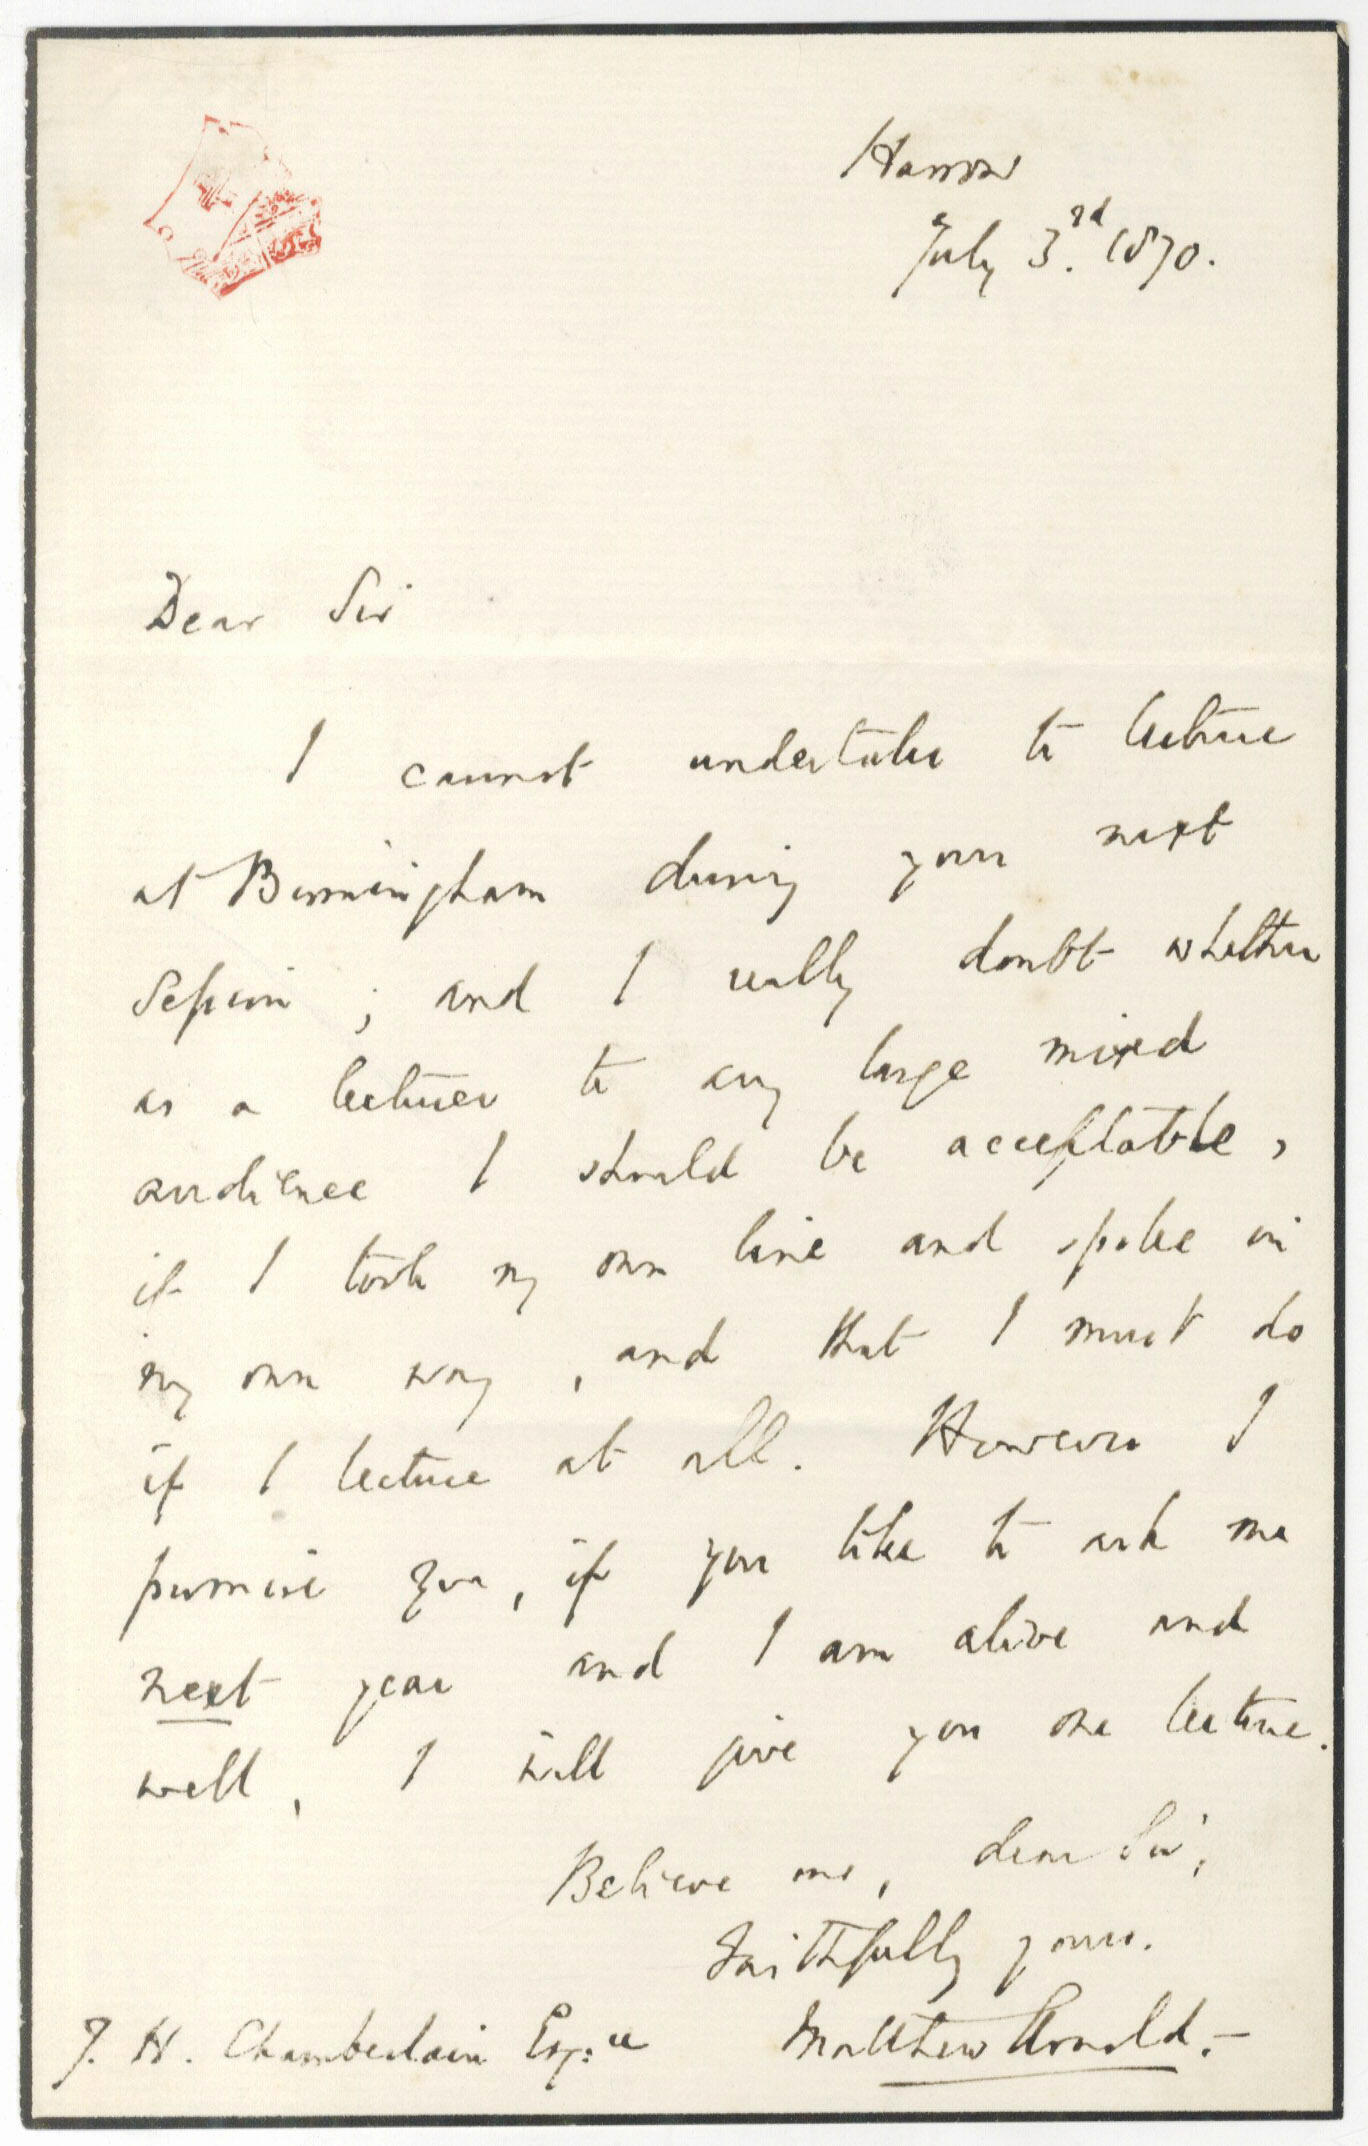 Harrow
July 3.rd 1870.
Dear Sir
I cannot undertake to lecture
at Birmingham during your next
Session ; and I really doubt whether
as a lecturer to any large mixed
audience I should be acceptable,
if I took my own line and spoke in
my own way, and that I must do
if I lecture at all. However I
promise you, if you like to ask me
next year and I am alive and
well, I will give you one lecture.
Believe me, dear Sir,
Faithfully yours.
Matthew Arnold.—
J. H. Chamberlain Esq:re